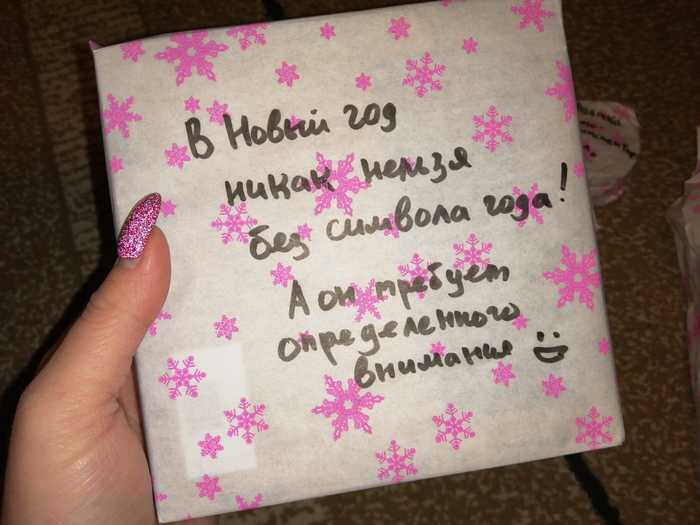 В Новый год
никак нельзя
без символа года!
А он требует
определенного
внимания